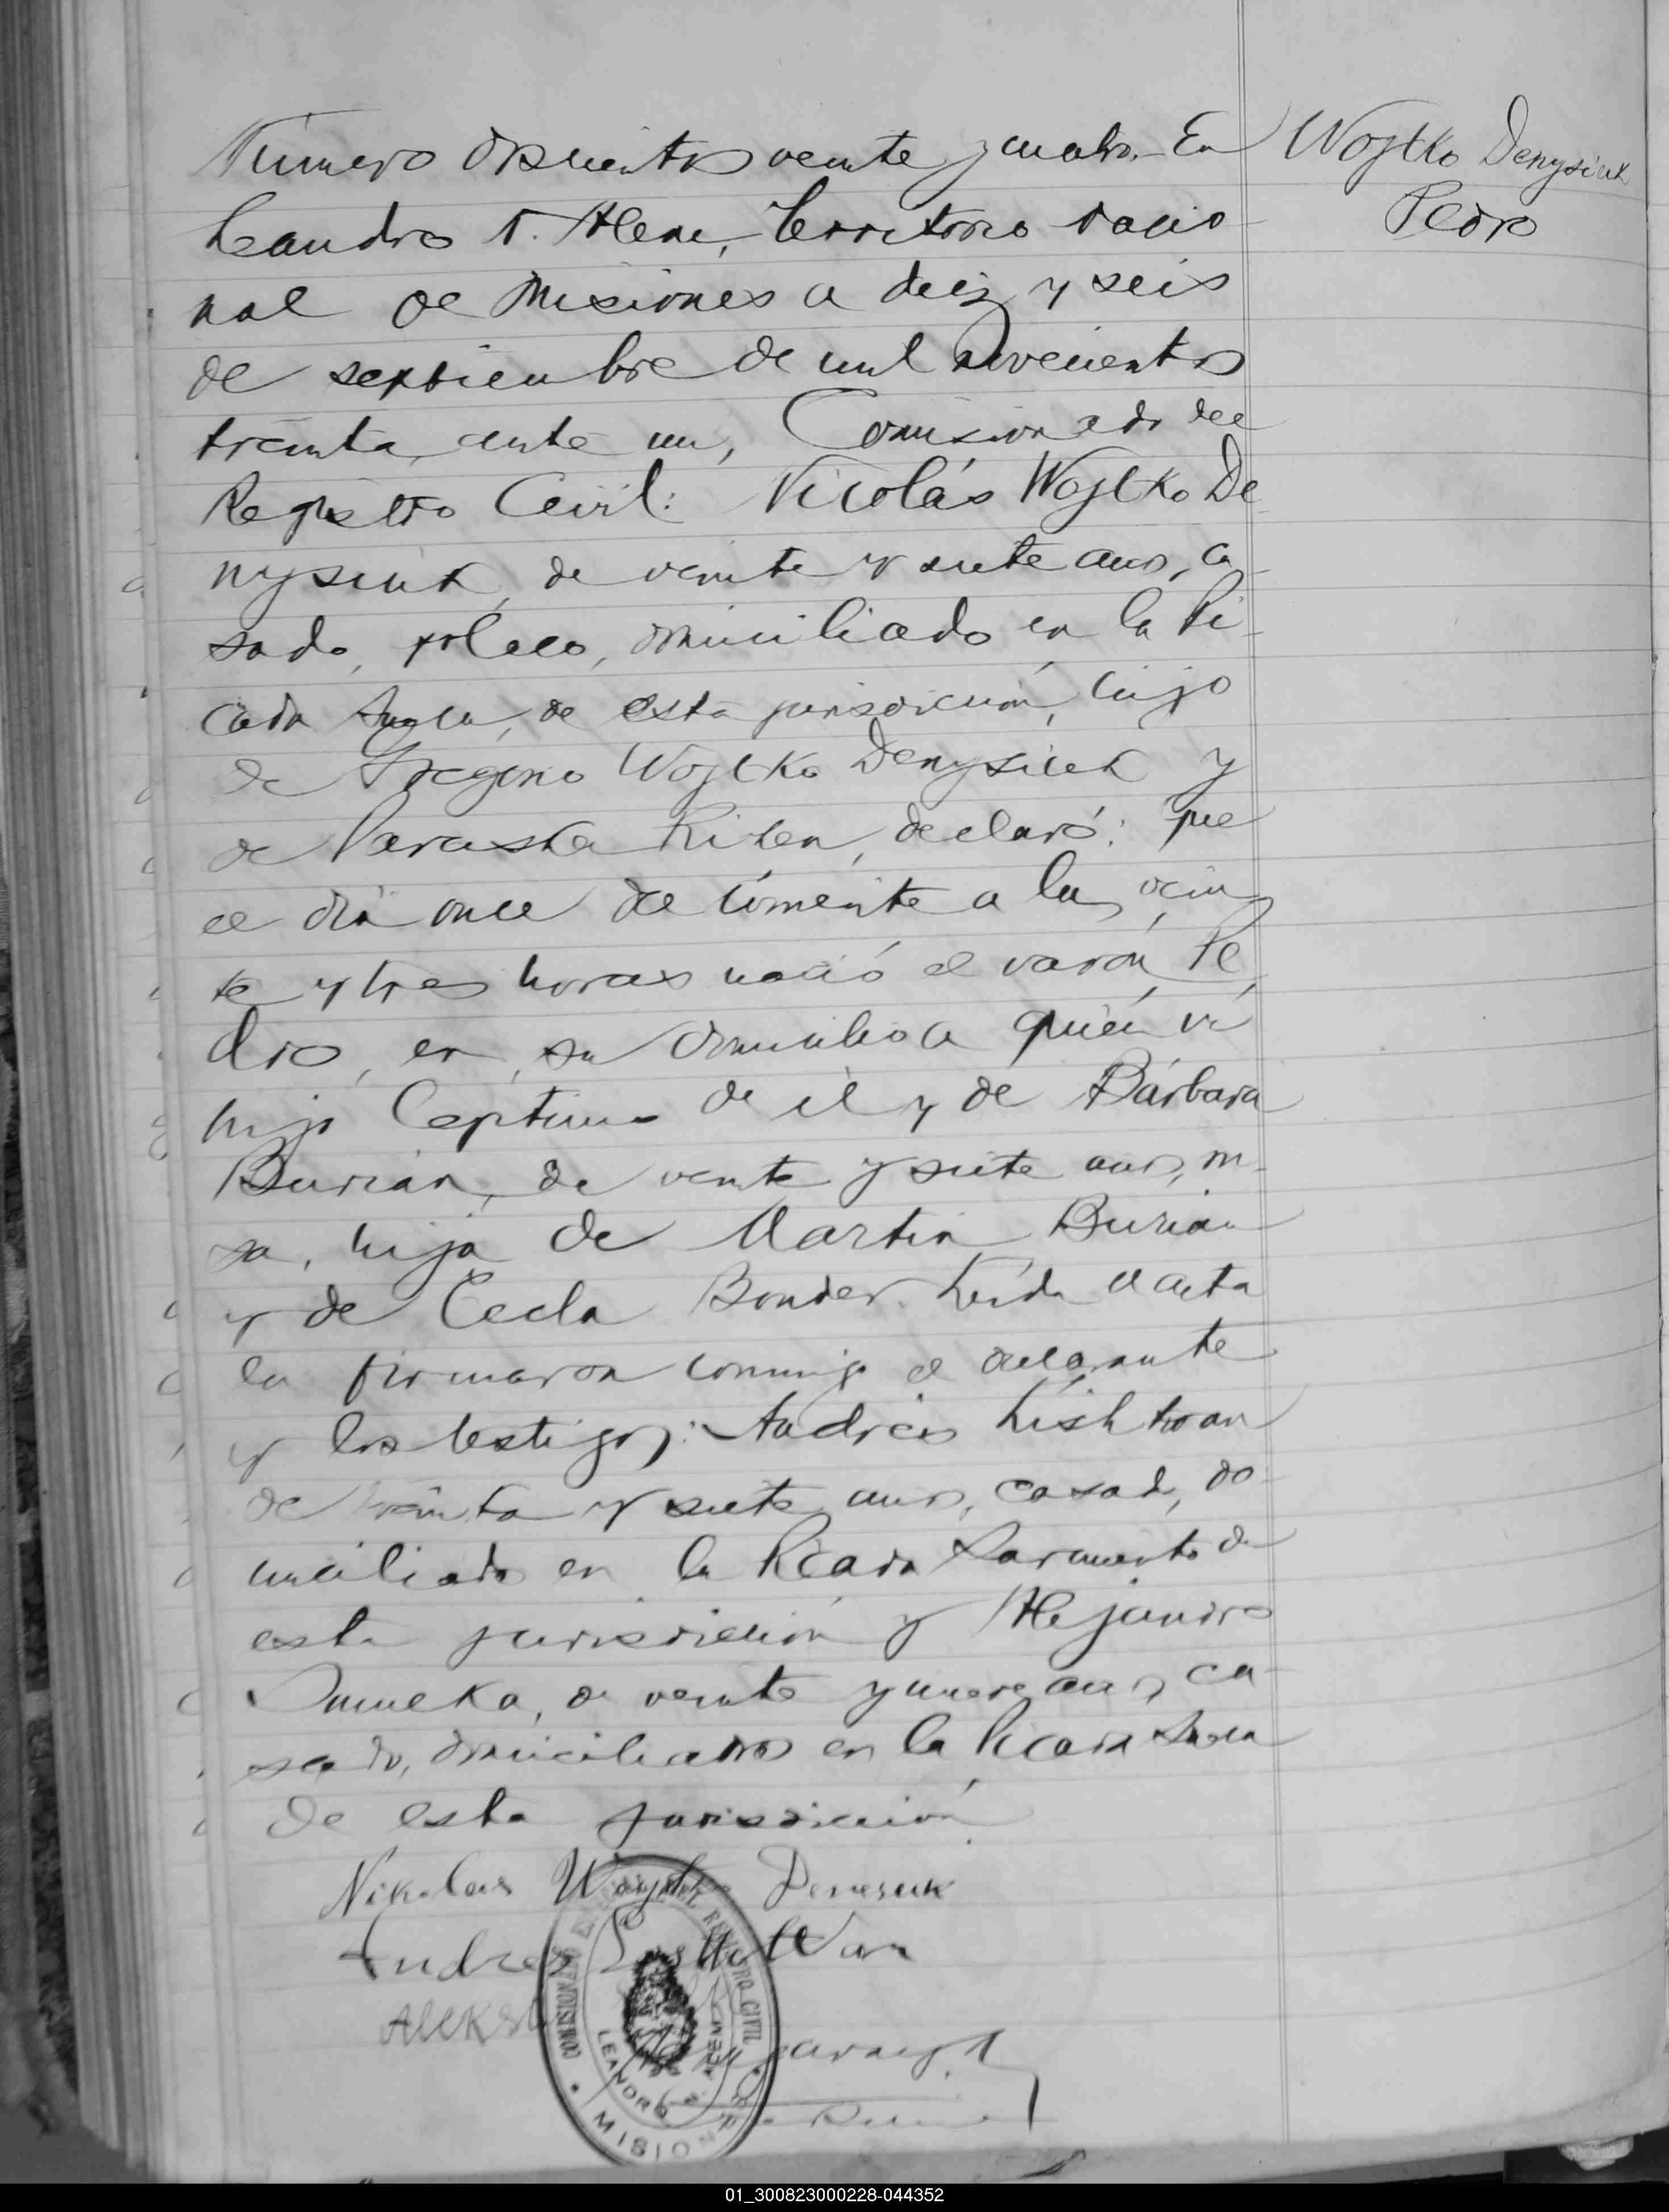 Número doscientos veinte y cuatro. En
Leandro N. Alem, Territorio Nacio-
nal de Misiones a diez y seis
de septiembre de mil novecientos
treinta, ante mi, Comisionado del
Registro Civil: Nicolás Wojtko De-
nysiuk, de veinte y siete años, ca-
sado, polaco, domiciliado en la Pi-
cada de esta jurisdicción, hijo
de Wojtko Denysiuk y
de Paraska declaró: que
el día once del corriente a las vein-
te y tres horas nació el varón Pe-
dro, en su domicilio a quién vi
hijo legítimo de él y de Bárbara
Burian, de veinte y siete años, ru-
sa, hija de Martin Burian
y de Tecla Bonder. Leída el acta
la firmaron conmigo el declarante
y los testigos: Andrés Lishtwan
de treinta y siete años, casado, do-
miciliado en la Picada Sarmiento de
esta jurisdicción y Alejandro
de veinte y nueve años, ca-
sado, domiciliados en la Picada
de esta jurisdicción
Wojtko Denysiuk
Pedro
Nikolas Wojtko Denesiuk
Andres
COMISIONADO DEL REGISTRO CIVIL
LEANDRO N. ALEM
MISIONES
01_300823000228-044352